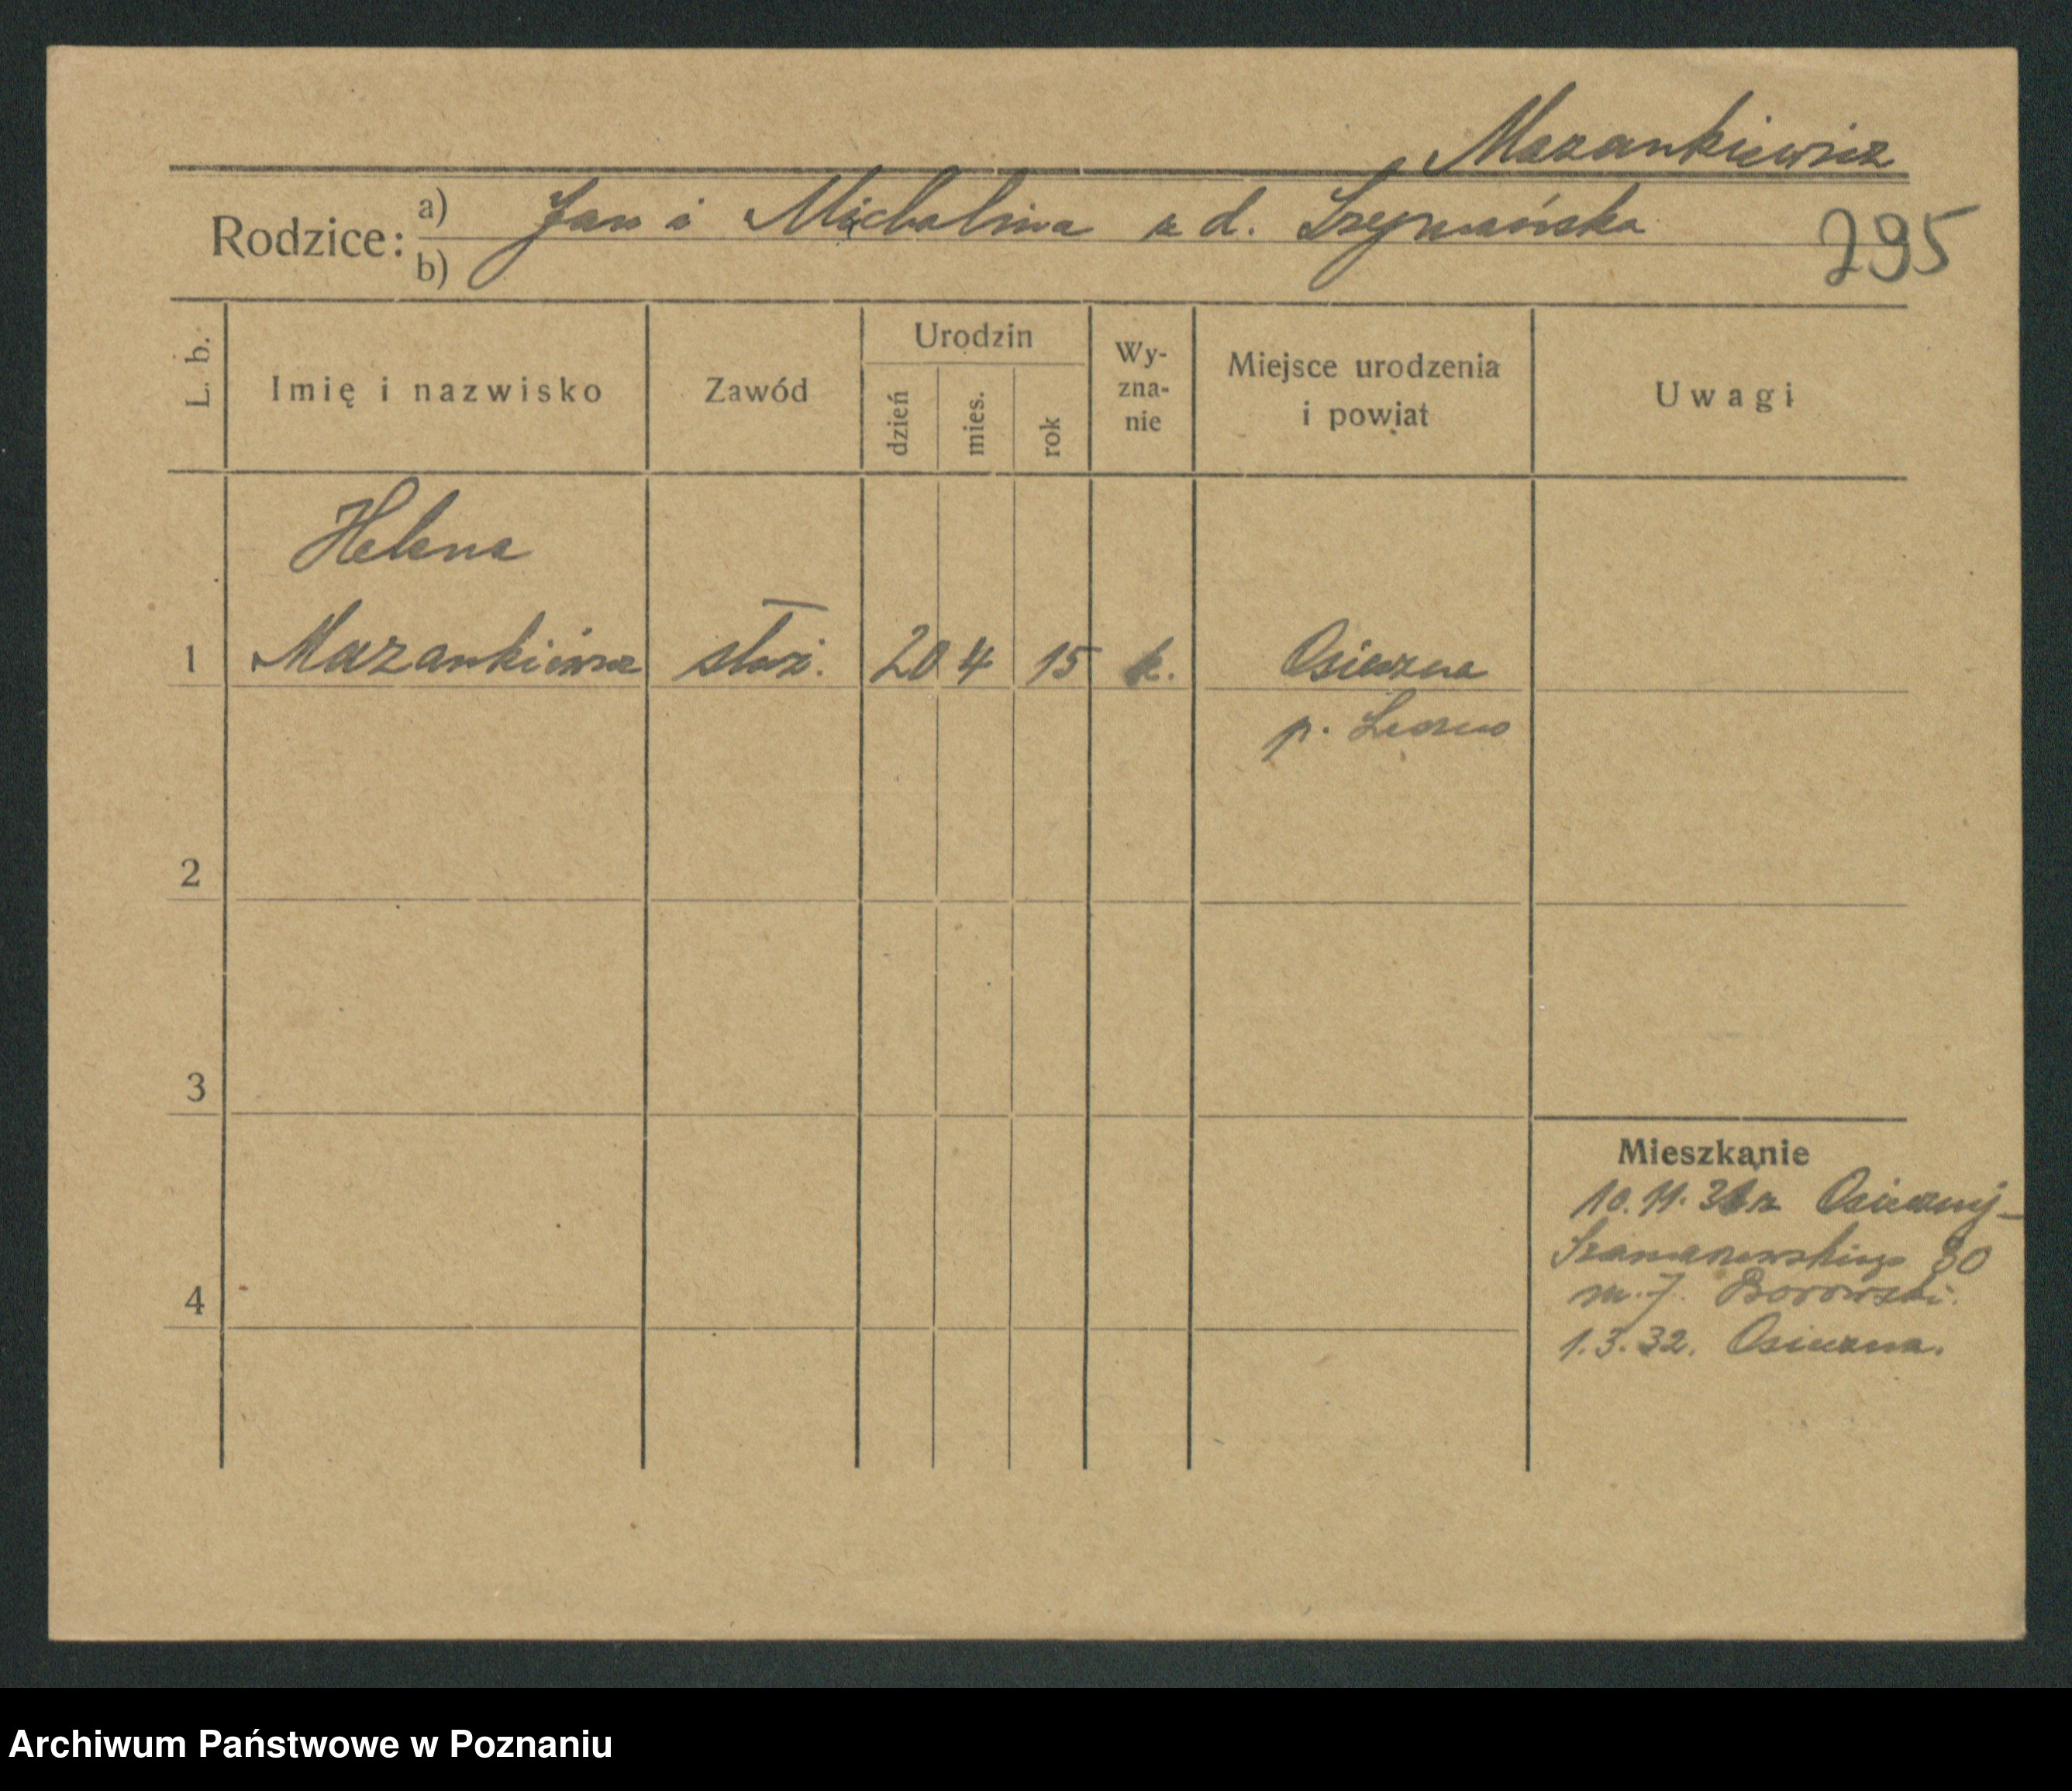 Mazankiewicz
Rodzice: a) Jan i Michalina z d. Szymańska
b)
295
L. b. Imię i nazwisko Zawód Urodzin dzień mies. rok Wy-zna-nie Miejsce urodzenia i powiat Uwagi
Helena
1 Mazankiewicz służ. 20 4 15 k. Osieczna
p. Leszno
2
3
Mieszkanie
10.11.31 z Osiecznej -
Szamarzewskiego 30
4 m. 7. Borowski.
1.3.32. Osieczna.
Archiwum Państwowe w Poznaniu